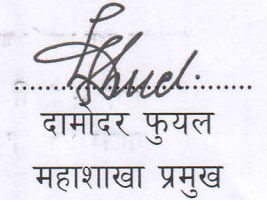 दामोदर फुयल
महाशाखा प्रमुख